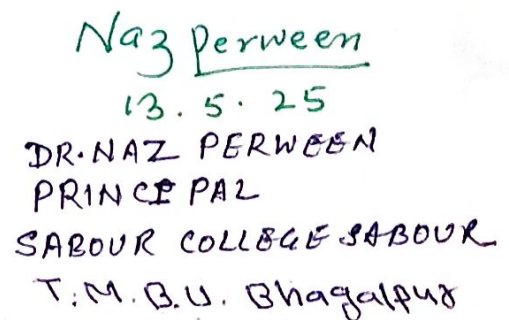 Naz Perween
13.5.25
DR. NAZ PERWEEN
PRINCEPAL
SABOUR COLLEGE SABOUR
T.M.B.U. Bhagalpur